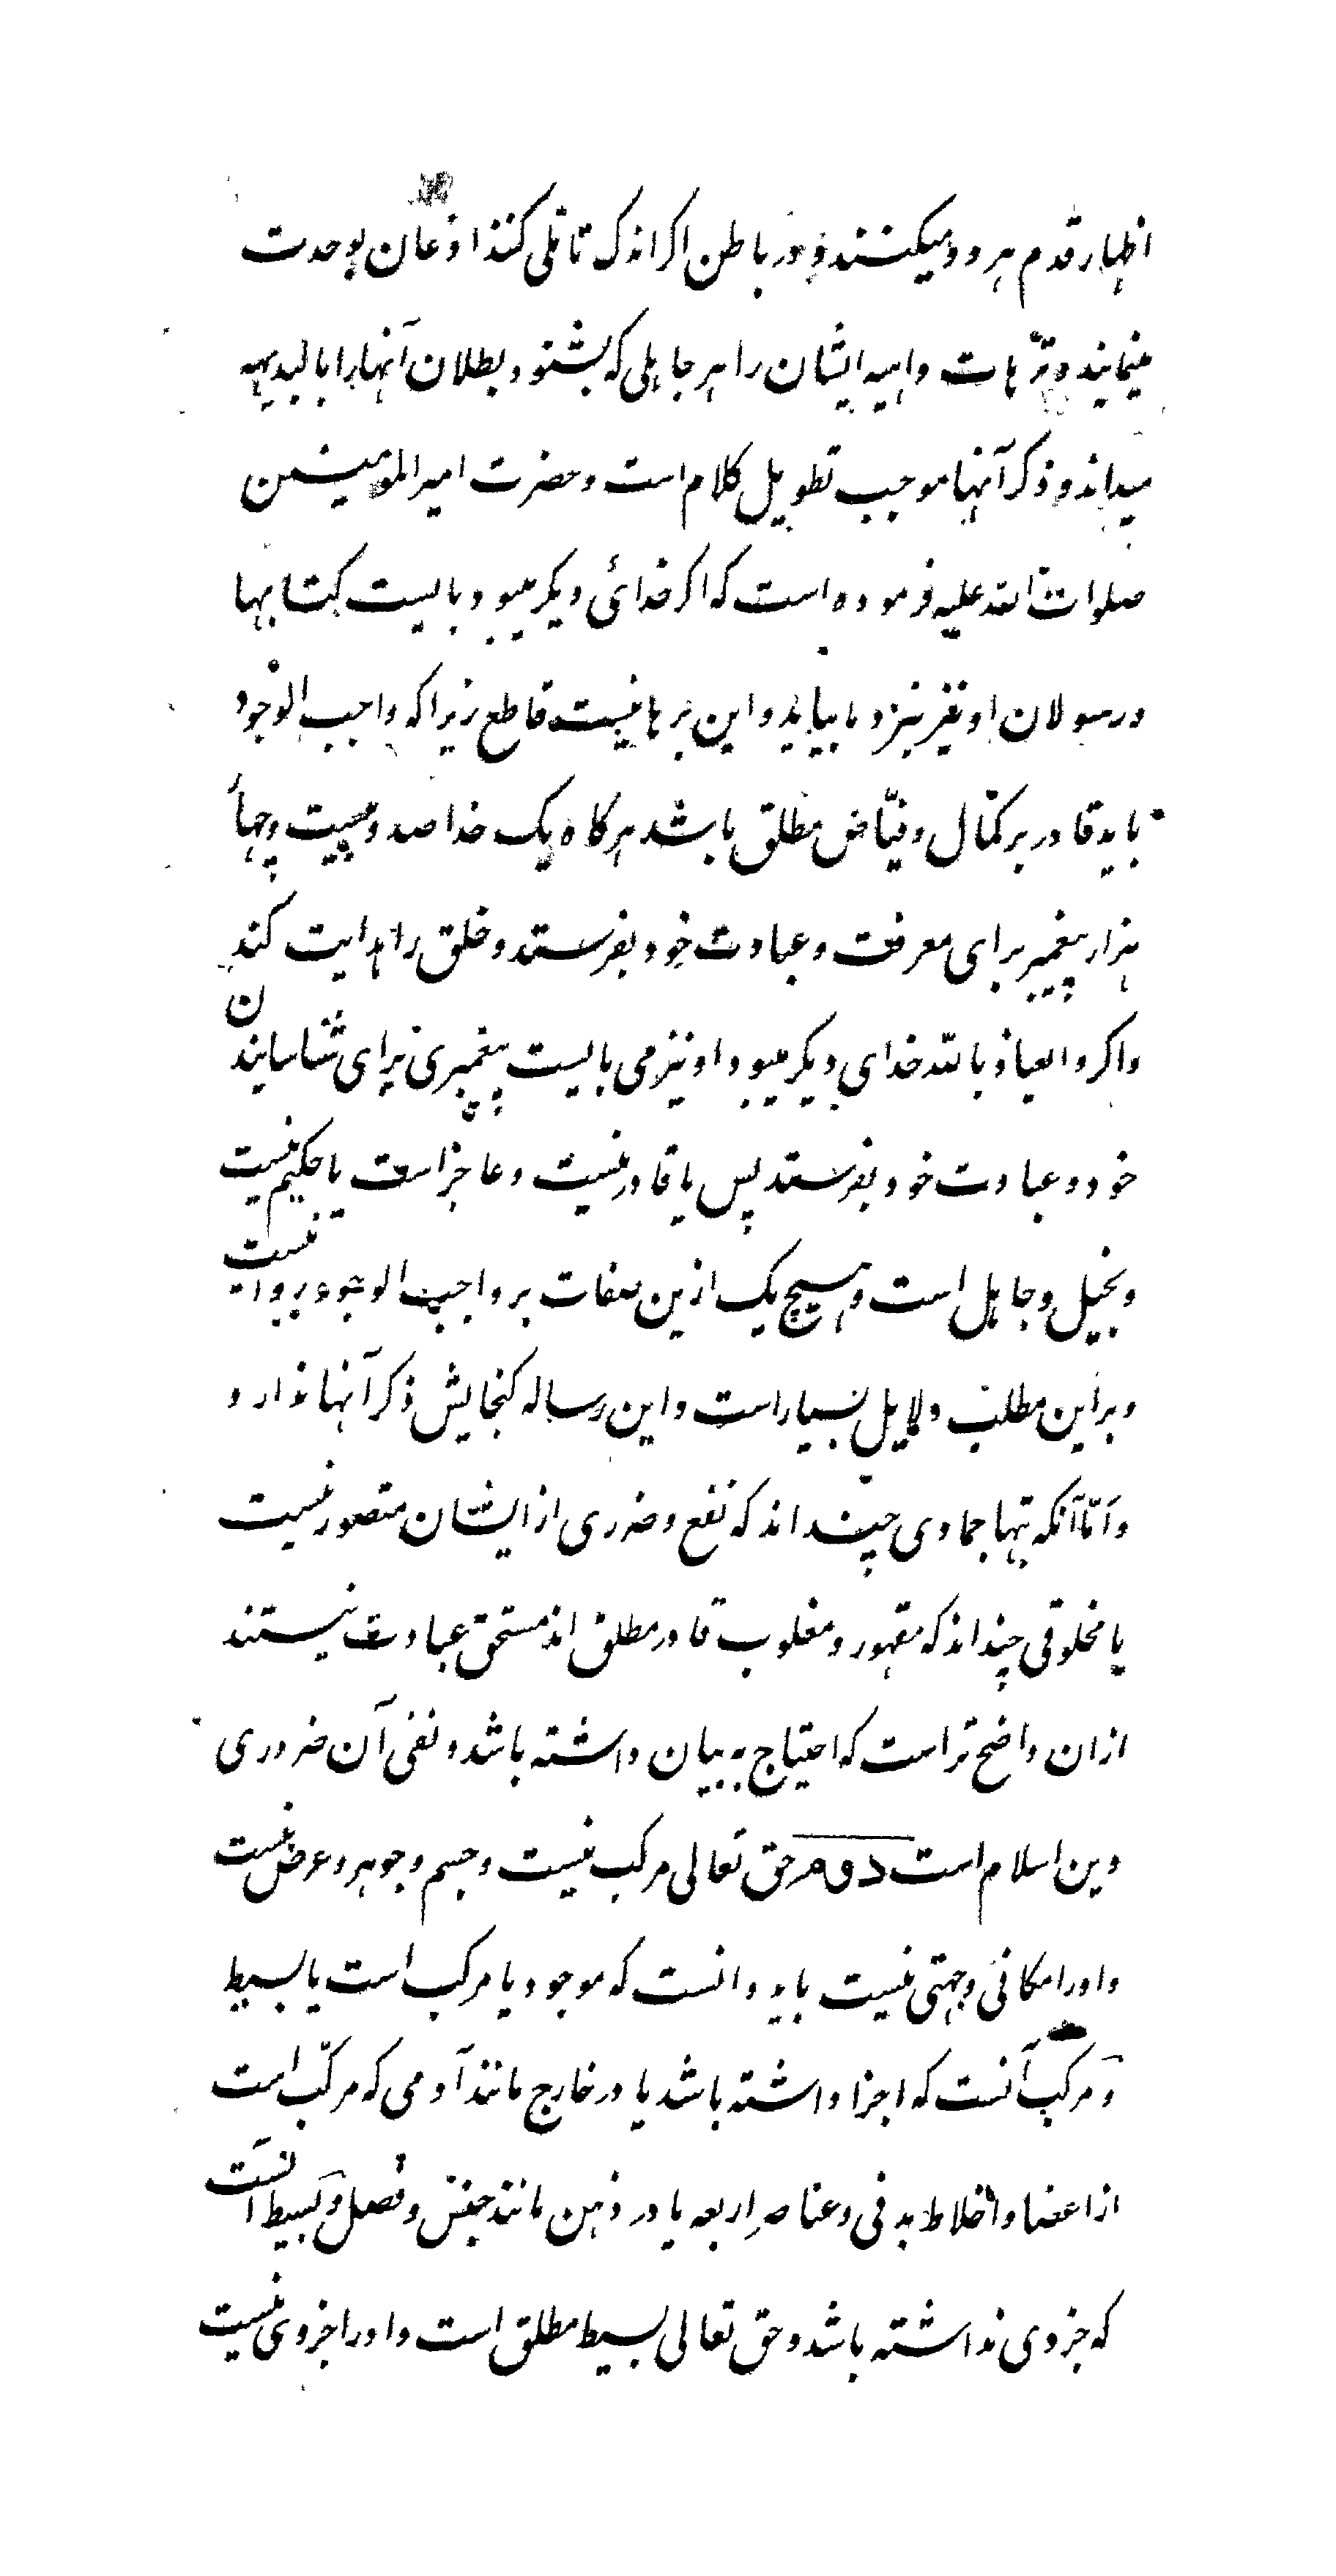 اظهار قدم هر دو میکنند و در باطن اکر اندک تاملی کنند اذعان بوحدت
مینمایند و ترّهات واهیه ایشان را هر جاهلی که بشنود بطلان آنها را بالبدیهه
میداند و ذکر آنها موجب تطویل کلام است و حضرت امیر المومنین
صلوات الله علیه فرموده است که اکر خدائی دیکر میبود بایست کتابها
و رسولان او نیز بنزد ما بیاید و این برهانیست قاطع زیرا که واجب الوجود
باید قادر بر کمال و فیّاض مطلق باشد هرکاه یک خدا صد و بیست و چهار
هزار پیغمبر برای معرفت و عبادت خود بفرستد و خلق را هدایت کند
و اکر و العیاذ بالله خدای دیکر میبود او نیز می بایست پیغمبری برای شناسایندن
خود و عبادت خود بفرستد پس یا قادر نیست و عاجز است یا حکیم نیست
و بخیل و جاهل است و هیچ یک ازین صفات بر واجب الوجود روا نیست
و براین مطلب دلایل بسیار است و این رساله کنجایش ذکر آنها ندارد
و امّا آنکه بتها جمادی چند اند که نفع و ضرری از ایشان متصور نیست
یا مخلوقی چند اند که مقهور و مغلوب قادر مطلق اند مستحق عبادت نیستند
ازان واضح تر است که احتیاج به بیان داشته باشد و نفی آن ضروری
دین اسلام است دوم حق تعالی مرکب نیست و جسم و جوهر و عرض نیست
و اورا مکانی و جهتی نیست باید دانست که موجود یا مرکب است یا بسیط
و مرکب آنست که اجزا داشته باشد یا در خارج مانند آدمی که مرکّب است
از اعضا و اخلاط بدنی و عناصر اربعه یا در ذهن مانند جنس و فصل و بسیط آنست
که جزوی نداشته باشد و حق تعالی بسیط مطلق است و اورا جزوی نیست